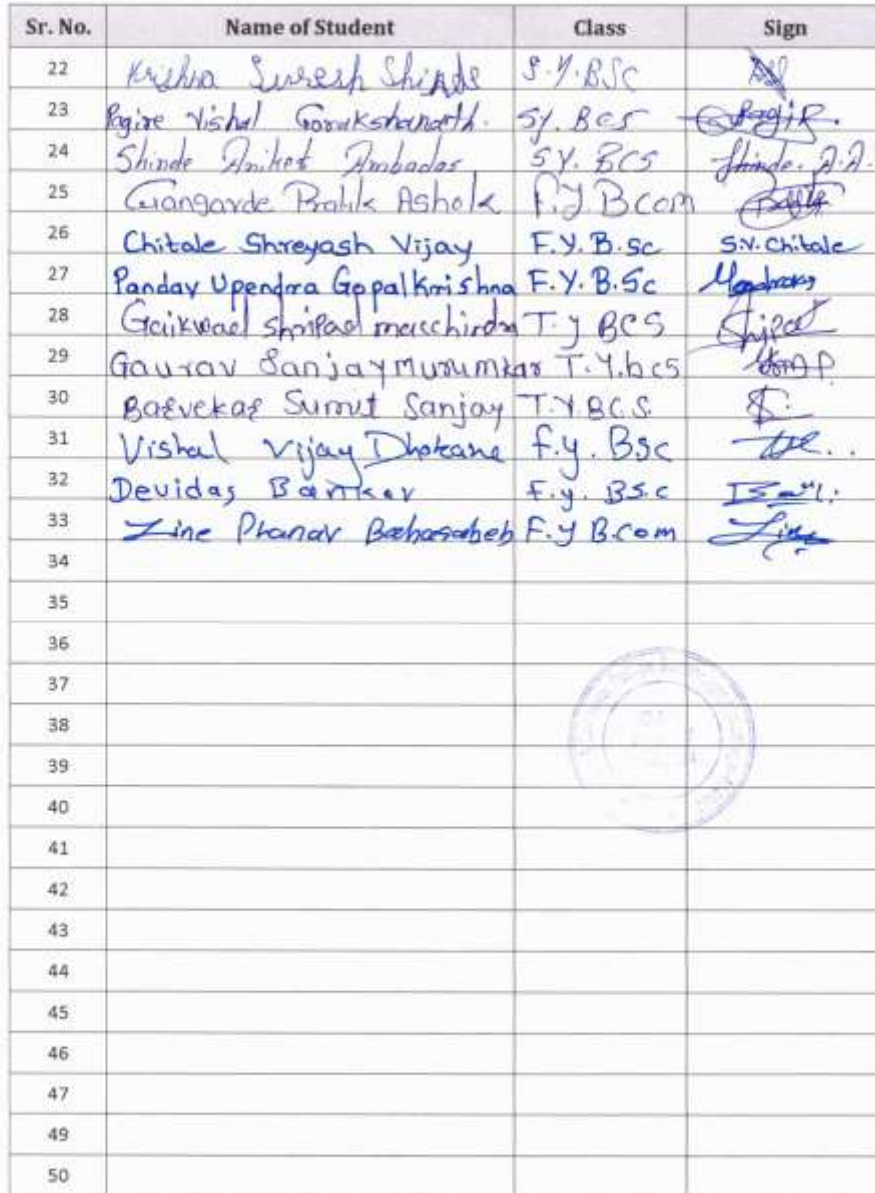 Sr. No. Name of Student Class Sign
22 Krishna Suresh Shinde S.Y.BSc
23 Pagire Vishal Gorakshanath. SY. BCS Pagire.
24 Shinde Aniket Ambadas SY. BCS Shinde. A.A.
25 Gangarde Pratik Ashok F.Y BCom
26 Chitale Shreyash Vijay F.Y.B.Sc S.V.Chitale
27 Pandav Upendra GopalKrishna F.Y.B.Sc
28 Gaikwad Shripad macchindra T.Y BCS Shripad
29 Gaurav Sanjay Murumkar T.Y.bcs
30 Barvekar Sumit Sanjay T.Y.B.C.S.
31 Vishal Vijay Dhokane F.y. BSc
32 Devidas Bankar F.y. BS.c
33 Zine Pranav Babasaheb F.Y B.com Zine
34
35
36
37
38
39
40
41
42
43
44
45
46
47
49
50